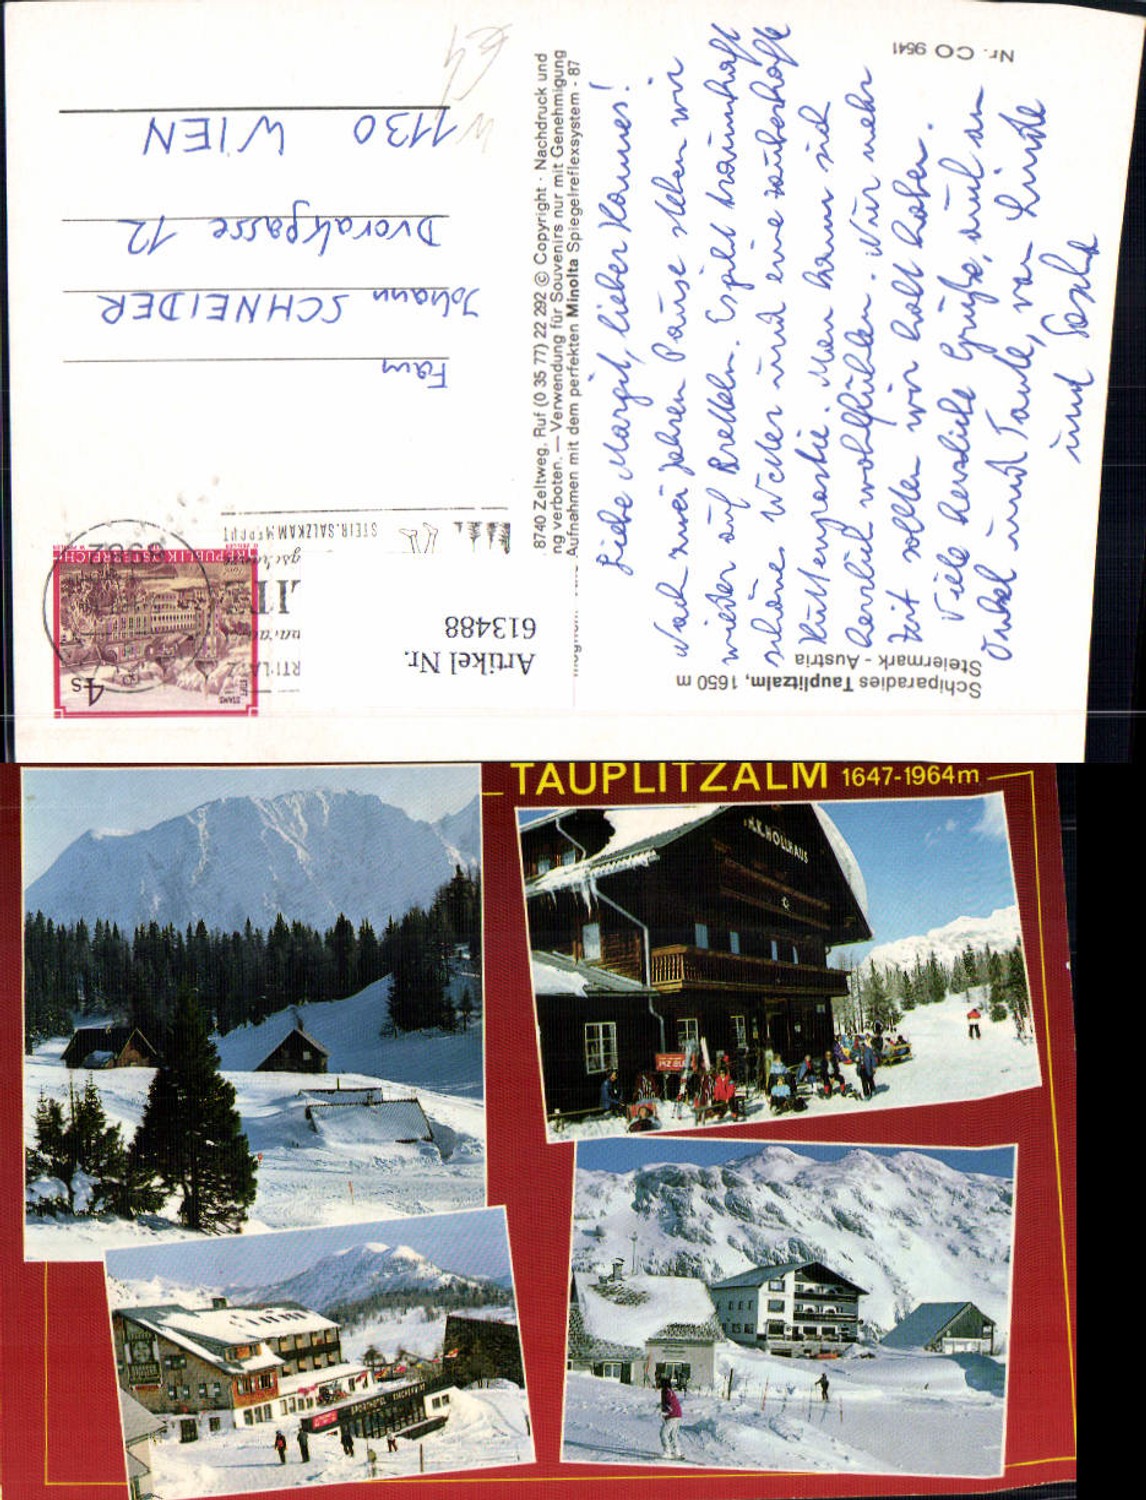 Schiparadies Tauplitzalm, 1650 m
Steiermark - Austria
Nr. CO 9541
Liebe Margit, lieber Hannes!
Nach zwei Jahren Pause stehen wir
wieder auf Bretteln. Es gibt traumhaft
schönes Wetter und eine zauberhafte
Hüttenpartie. Man kann sich
herrlich wohlfühlen. Nur mehr
Zeit sollten wir halt haben.
Viele herzliche Grüße, auch an
Onkel und Tante, von Linde
und
8740 Zeltweg, Ruf (0 35 77) 22 292 © Copyright · Nachdruck und
ng verboten. — Verwendung für Souvenirs nur mit Genehmigung
Aufnahmen mit dem perfekten Minolta Spiegelreflexsystem - 87
Artikel Nr.
613488
REPUBLIK ÖSTERREICH
4s
STIFT
STAMS
STEIR.SALZKAMMERGUT
Fam
Johann SCHNEIDER
Dvorakgasse 12
1130 WIEN
TAUPLITZALM 1647-1964m
HOLLHAUS
SPORTHOTEL